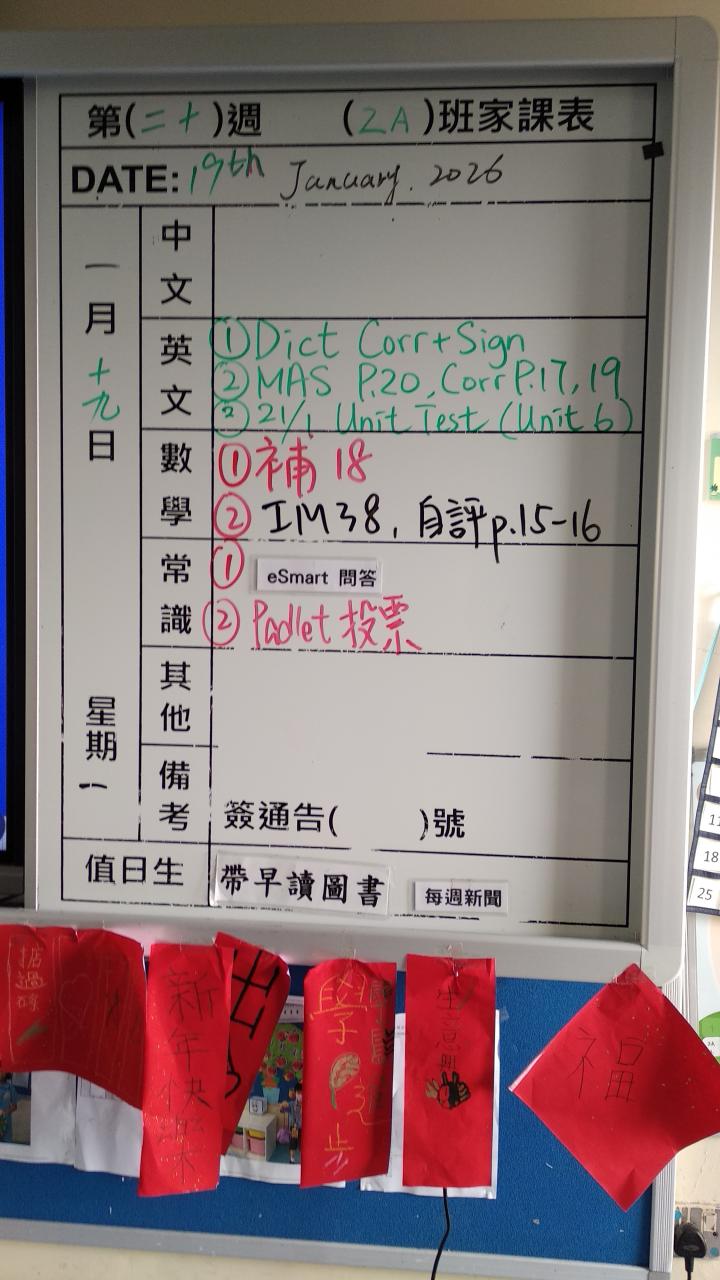 第(二十)週 (2A)班家課表
DATE: 19th January. 2026
一月十九日
星期一
中文
英文
①Dict Corr+Sign
②MAS P.20, Corr P.17, 19
③21/1 Unit Test (Unit 6)
數學
①補18
②IM38, 自評p.15-16
常識
① eSmart 問答
②Padlet 投票
其他
備考
簽通告( )號
值日生
帶早讀圖書
每週新聞
11
18
25
新年快樂
出
學業進步
生意興
福